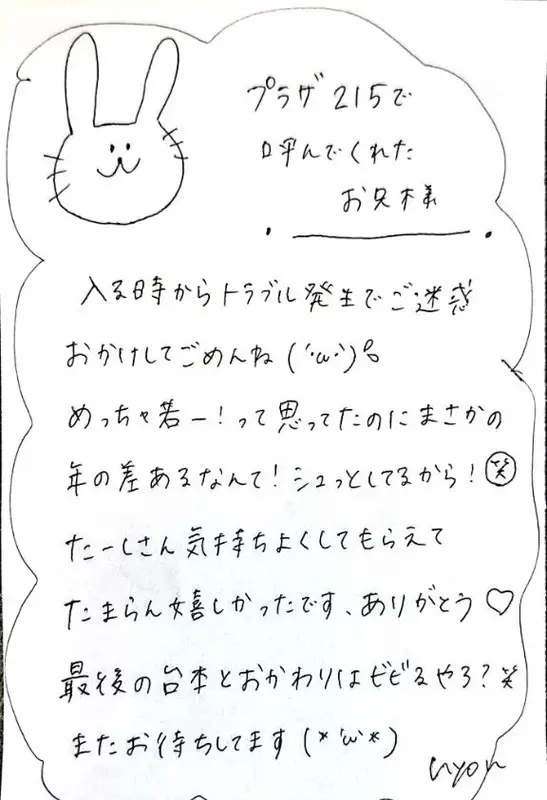 プラザ215で
呼んでくれた
お兄様
入る時からトラブル発生でご迷惑
おかけしてごめんね(´･ω･`)
めっちゃ若ー!って思ってたのにまさかの
年の差あるなんて!シュっとしてるから!笑
たーしさん気持ちよくしてもらえて
たまらん嬉しかったです、ありがとう♡
最後の台本とおかわりはビビるやろ?笑
またお待ちしてます(*'ω'*)